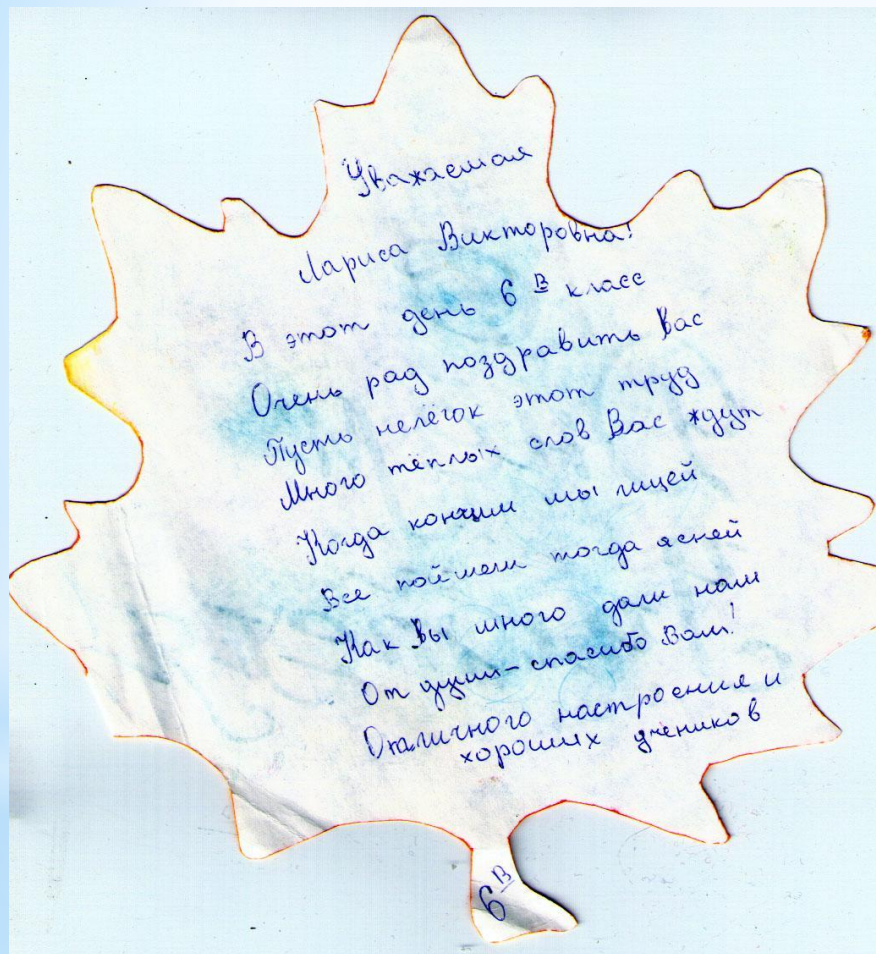 Уважаемая
Лариса Викторовна!
В этот день 6 В класс
Очень рад поздравить Вас
Пусть нелёгок этот труд
Много тёплых слов Вас ждут
Когда кончим мы лицей
Все поймем тогда ясней
Как Вы много дали нам
От души - спасибо Вам!
Отличного настроения и
хороших учеников
6 В